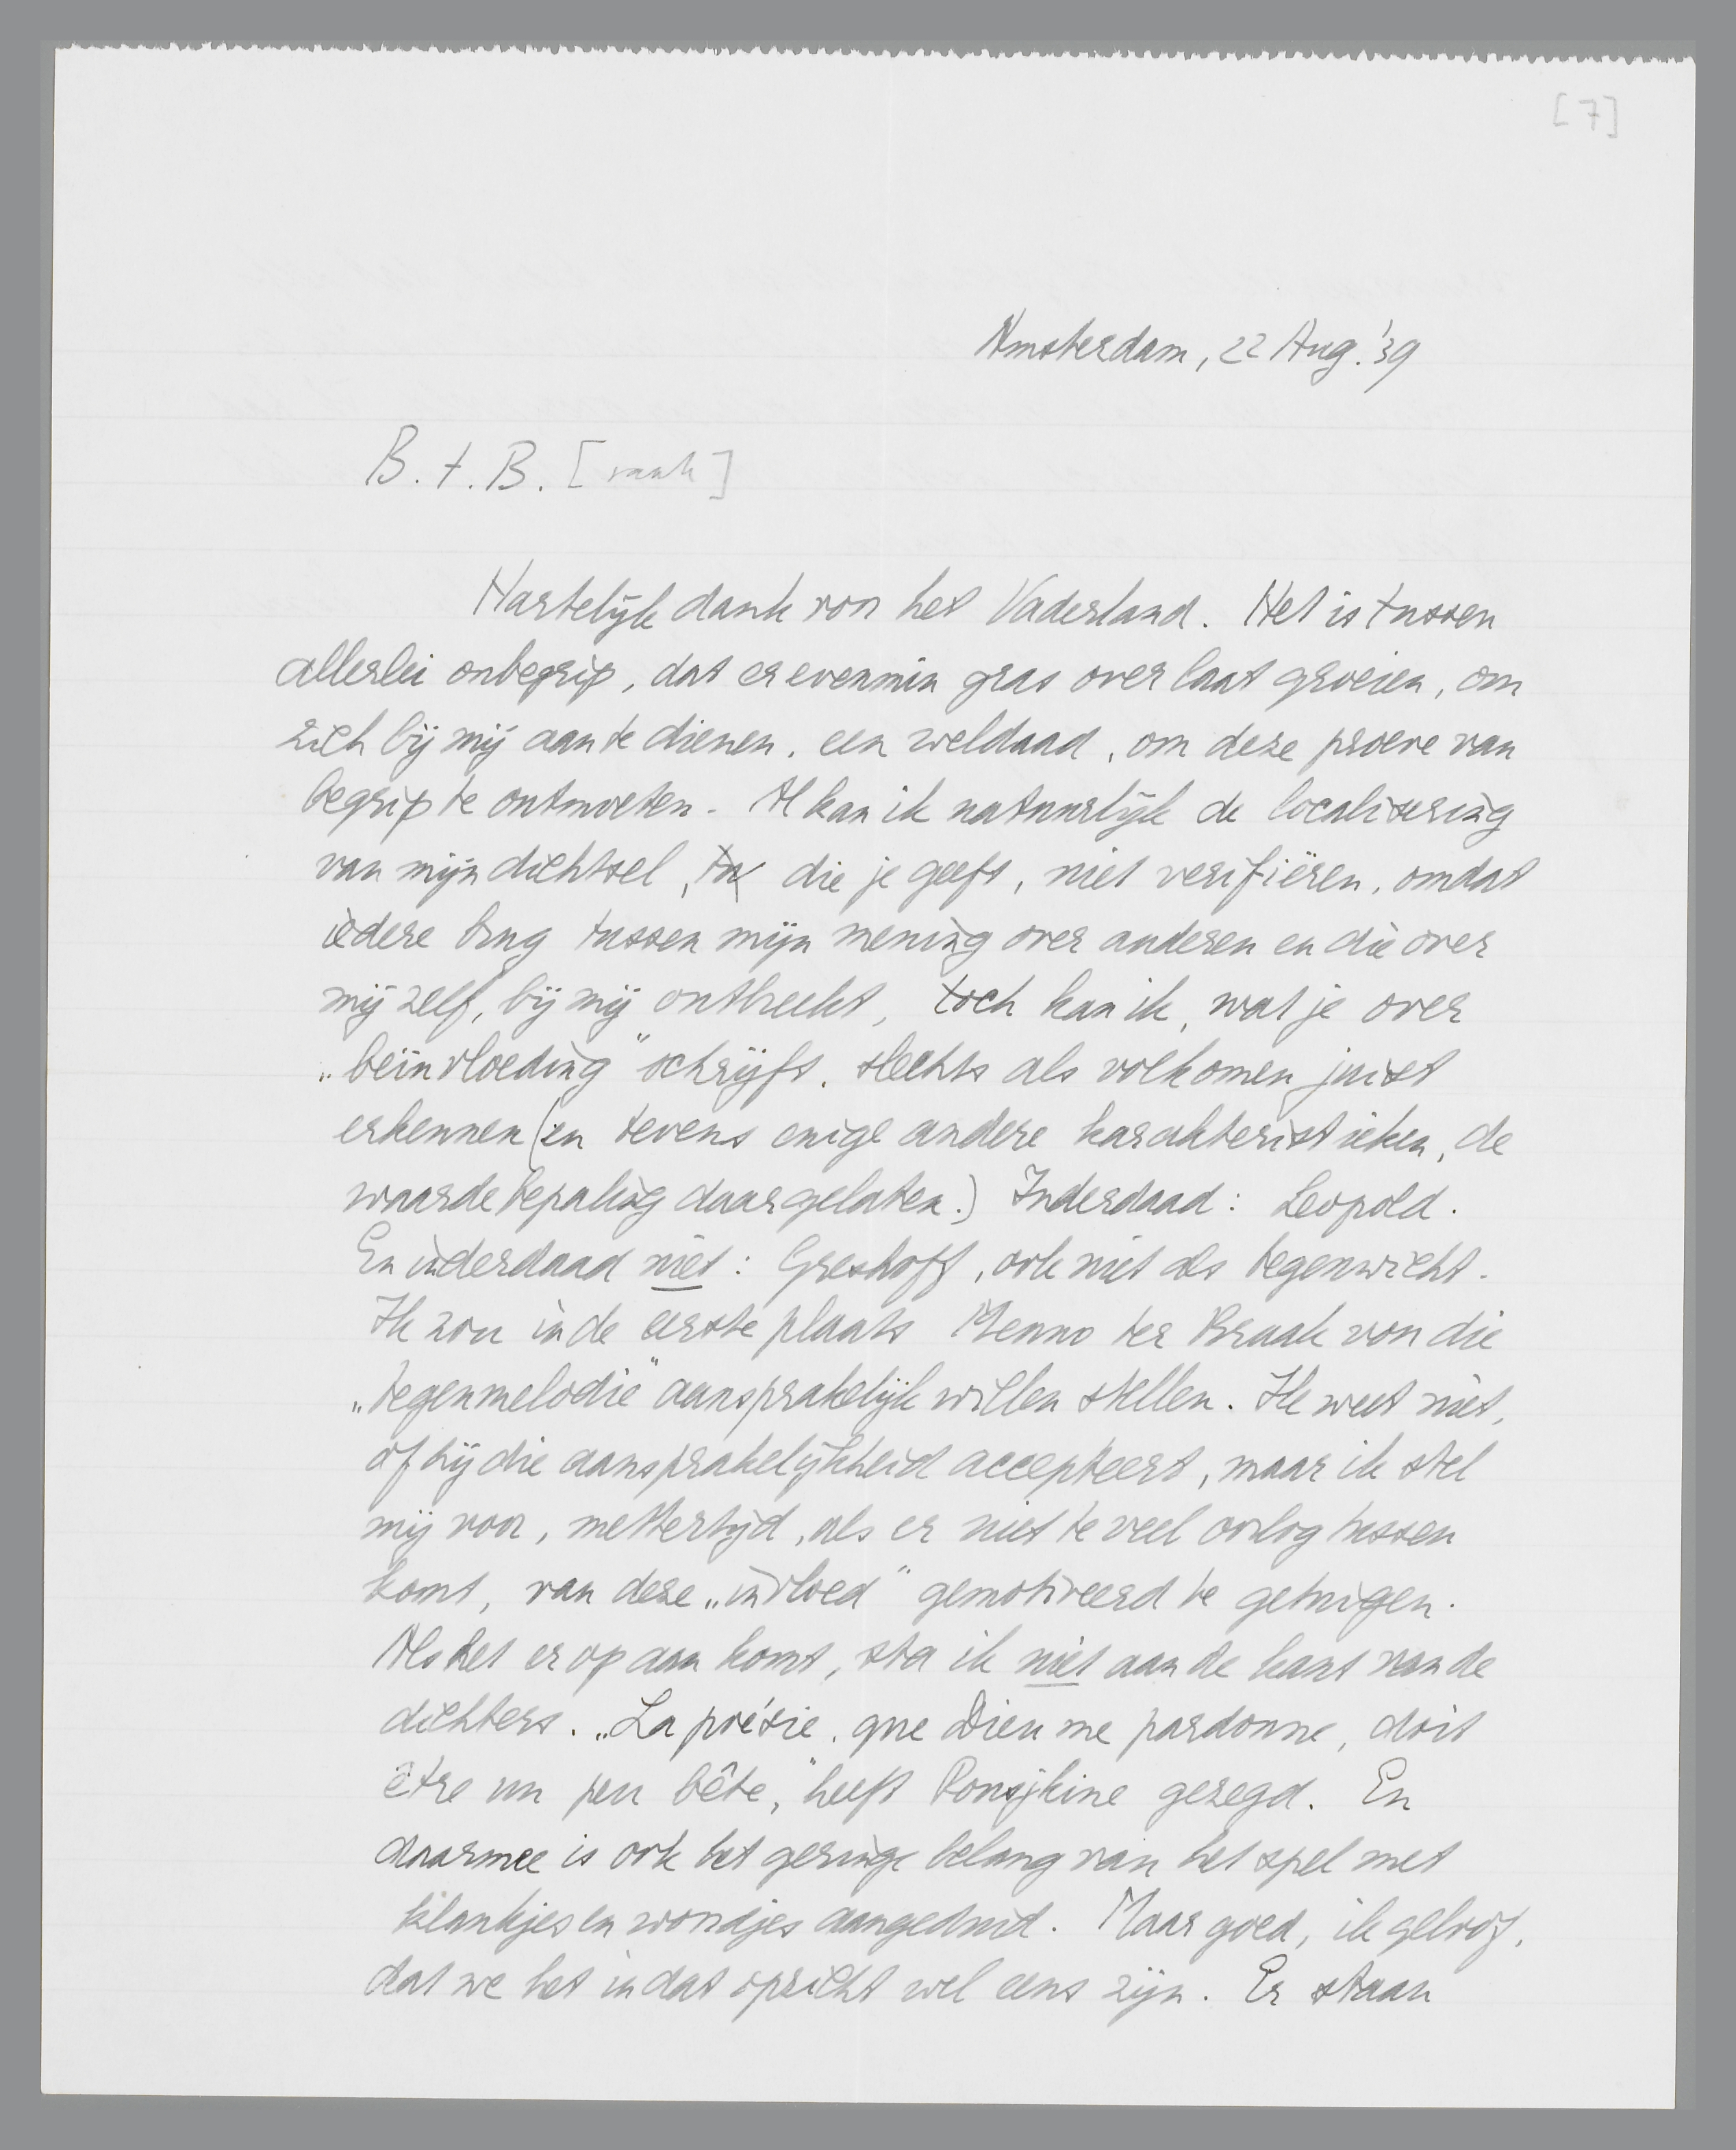 [7]
Amsterdam, 22 Aug. '39
B. t. B. [raak]
Hartelijk dank voor het Vaderland. Het is tussen
allerlei onbegrip, dat er evenmin gras over laat groeien, om
zich bij mij aan te dienen, een weldaad, om deze proeve van
begrip te ontmoeten. Al kan ik natuurlijk de localisering
van mijn dichtsel, die je geeft, niet verifiëren, omdat
iedere brug tussen mijn mening over anderen en die over
mij zelf, bij mij ontbreekt, toch kan ik, wat je over
„beïnvloeding" schrijft, slechts als volkomen juist
erkennen (en tevens enige andere karakteristieken, de
waardebepaling daargelaten.) Inderdaad: Leopold.
En inderdaad niet: Greshoff, ook niet als tegenwicht.
Ik zou in de eerste plaats Menno ter Braak voor die
„tegenmelodie" aansprakelijk willen stellen. Ik weet niet,
of hij die aansprakelijkheid accepteert, maar ik stel
mij voor, mettertijd, als er niet te veel oorlog tussen
komt, van deze „invloed" gemotiveerd te getuigen.
Als het er op aan komt, sta ik niet aan de kant van de
dichters. „La poésie, que Dieu me pardonne, doit
être un peu bête," heeft Pousjkine gezegd. En
daarmee is ook het geringe belang van het spel met
klankjes en woordjes aangeduid. Maar goed, ik geloof,
dat we het in dat opzicht wel eens zijn. Er staan